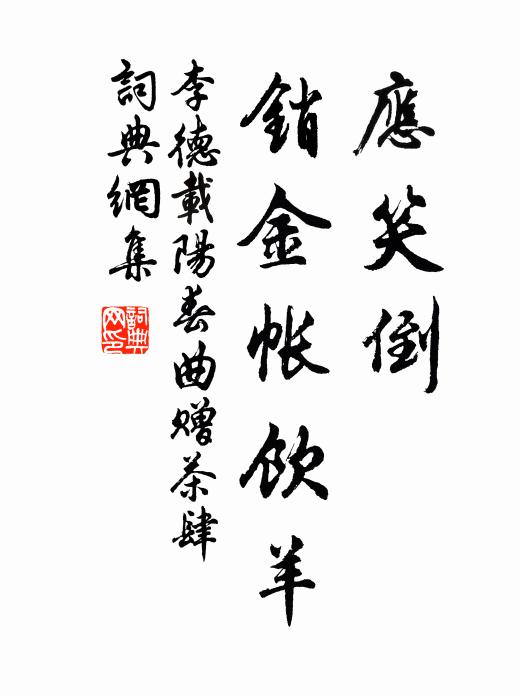 應笑倒
銷金帳飲羊
李德載陽春曲贈茶肆
詞典網集
詞典
网印